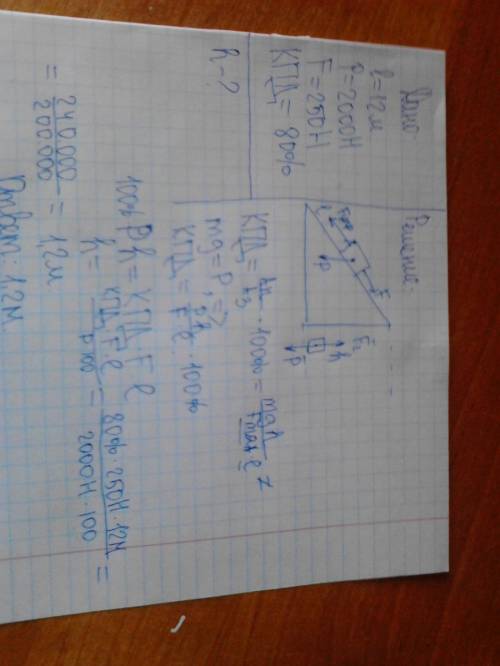 Дано:
l=12м
P=2000Н
F=250Н
КПД=80%
h-?
Решение:
F
P
F₂
h
P
КПД = Aп/Aз · 100% = mgh/Fтяг·l
mg=P, =>
КПД = Ph/Fl · 100%
100% Ph = КПД F l
h = КПД F·l/P·100 = 80%·250Н·12м/2000Н·100 =
= 240.000/200.000 = 1,2м
Ответ: 1,2м